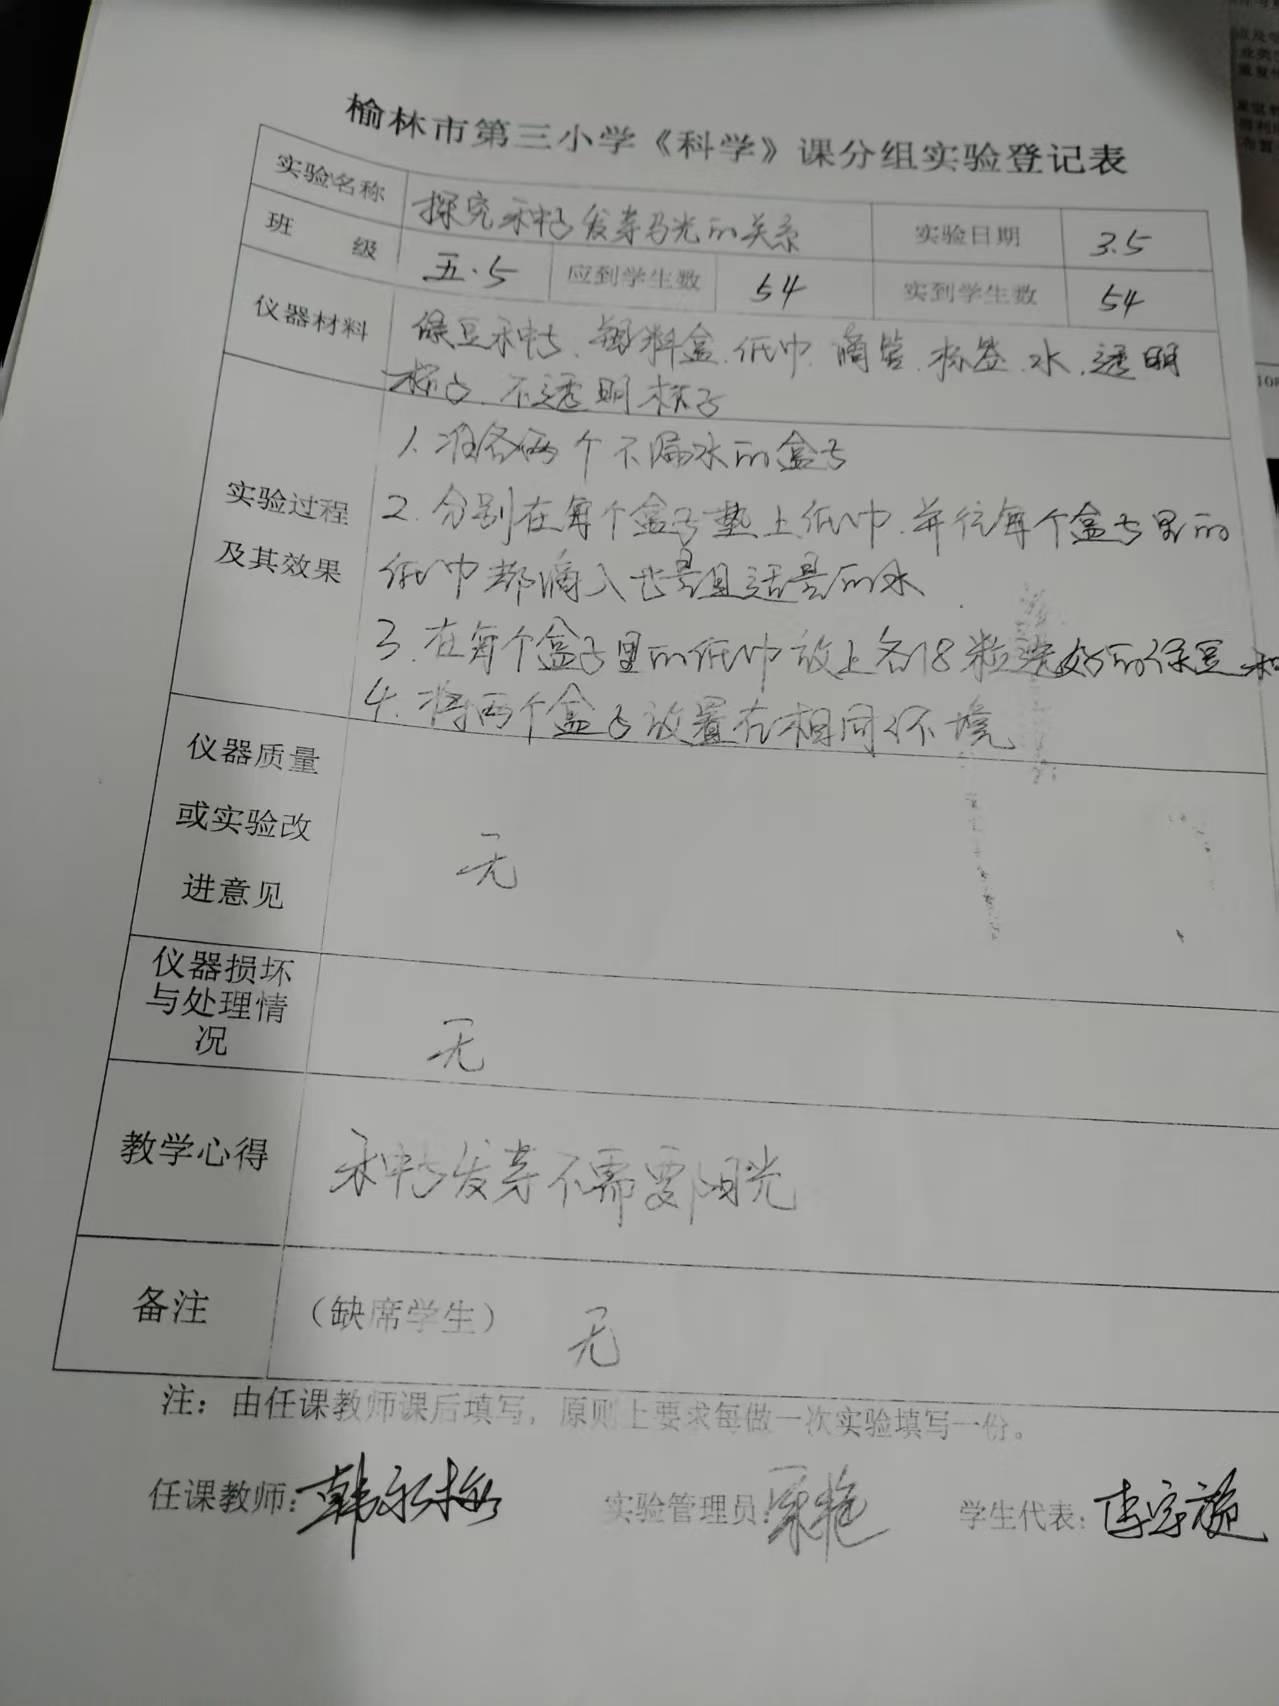 榆林市第三小学《科学》课分组实验登记表
实验名称 探究种子发芽与光的关系 实验日期 3.5
班 级 五.5 应到学生数 54 实到学生数 54
仪器材料 绿豆种子、塑料盒、纸巾、滴管、标签、水、透明
杯子、不透明杯子
1. 准备两个不漏水的盒子
实验过程 2. 分别在每个盒子垫上纸巾、并往每个盒子里的
及其效果 纸巾都滴入 且适量的水
3. 在每个盒子里的纸巾放上各18粒 好的绿豆种
4. 将两个盒子放置在相同环境
仪器质量
或实验改
进意见
无
仪器损坏
与处理情
况
无
教学心得 种子发芽不需要阳光
备注 （缺席学生） 无
注：由任课教师课后填写，原则上要求每做一次实验填写一份。
任课教师： 实验管理员： 学生代表：